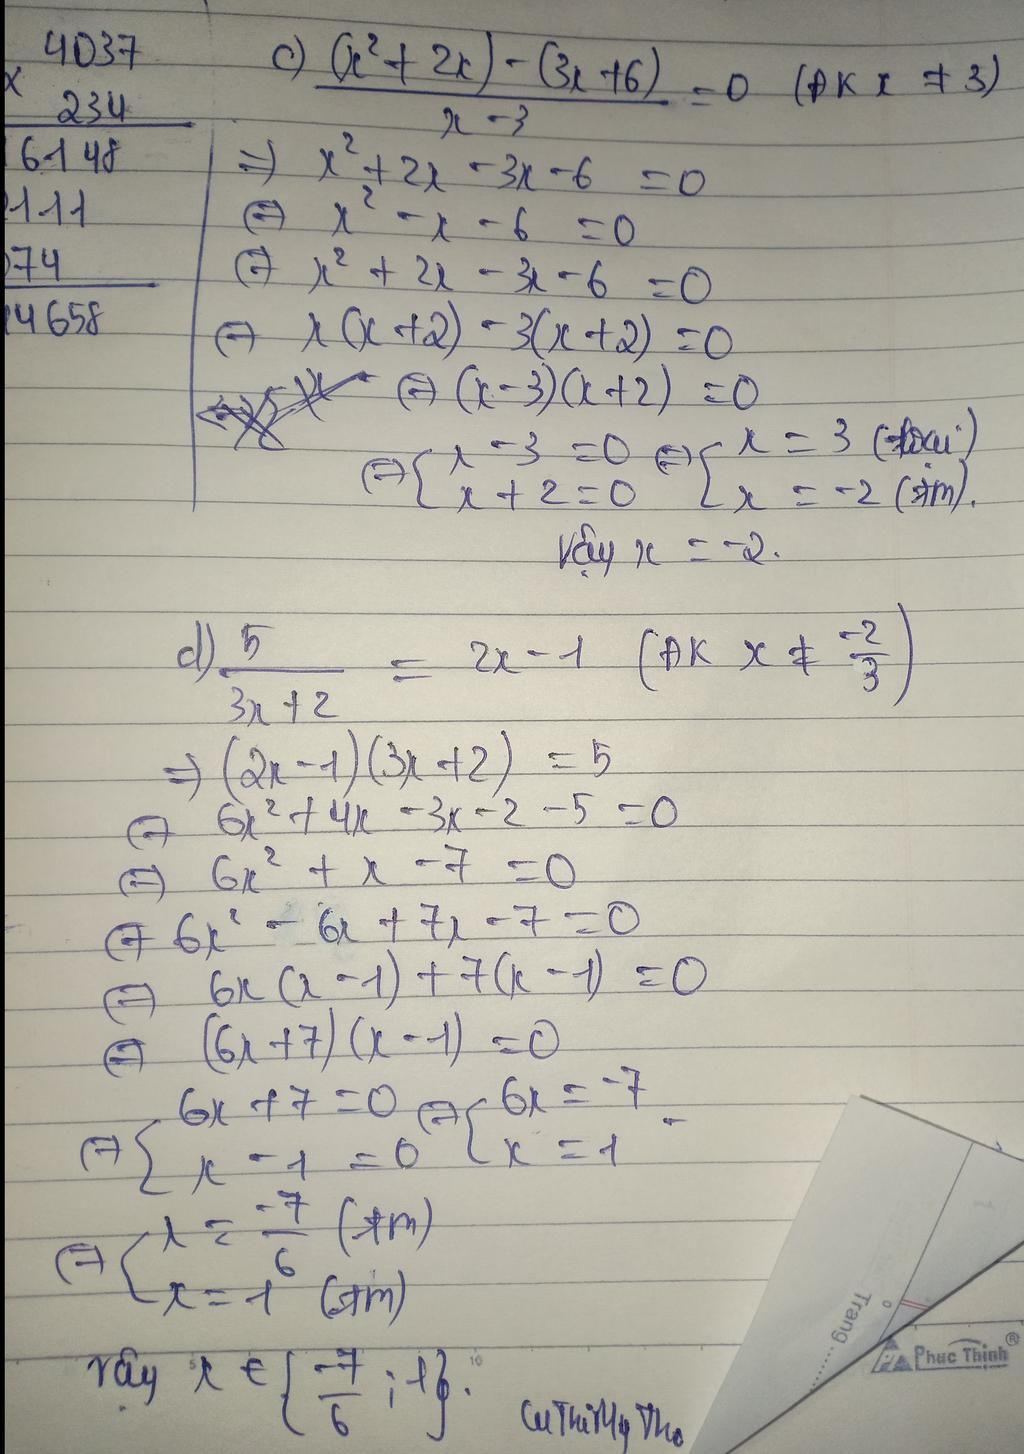 4037
x
234
6148
111
74
4658
c) (x² + 2x) - (3x + 6) / x - 3 = 0 (ĐK x ≠ 3)
=> x² + 2x - 3x - 6 = 0
<=> x² - x - 6 = 0
<=> x² + 2x - 3x - 6 = 0
<=> x(x + 2) - 3(x + 2) = 0
<=> (x - 3)(x + 2) = 0
<=> { x - 3 = 0 <=> { x = 3 (loại)
x + 2 = 0 x = -2 (tm).
Vậy x = -2.
d) 5 / 3x + 2 = 2x - 1 (ĐK x ≠ -2/3)
=> (2x - 1)(3x + 2) = 5
<=> 6x² + 4x - 3x - 2 - 5 = 0
<=> 6x² + x - 7 = 0
<=> 6x² - 6x + 7x - 7 = 0
<=> 6x(x - 1) + 7(x - 1) = 0
<=> (6x + 7)(x - 1) = 0
<=> { 6x + 7 = 0 <=> { 6x = -7
x - 1 = 0 x = 1
<=> { x = -7/6 (tm)
x = 1 (tm)
Vậy x ∈ { -7/6 ; 1 }.
10
Trang
Phuc Thinh®